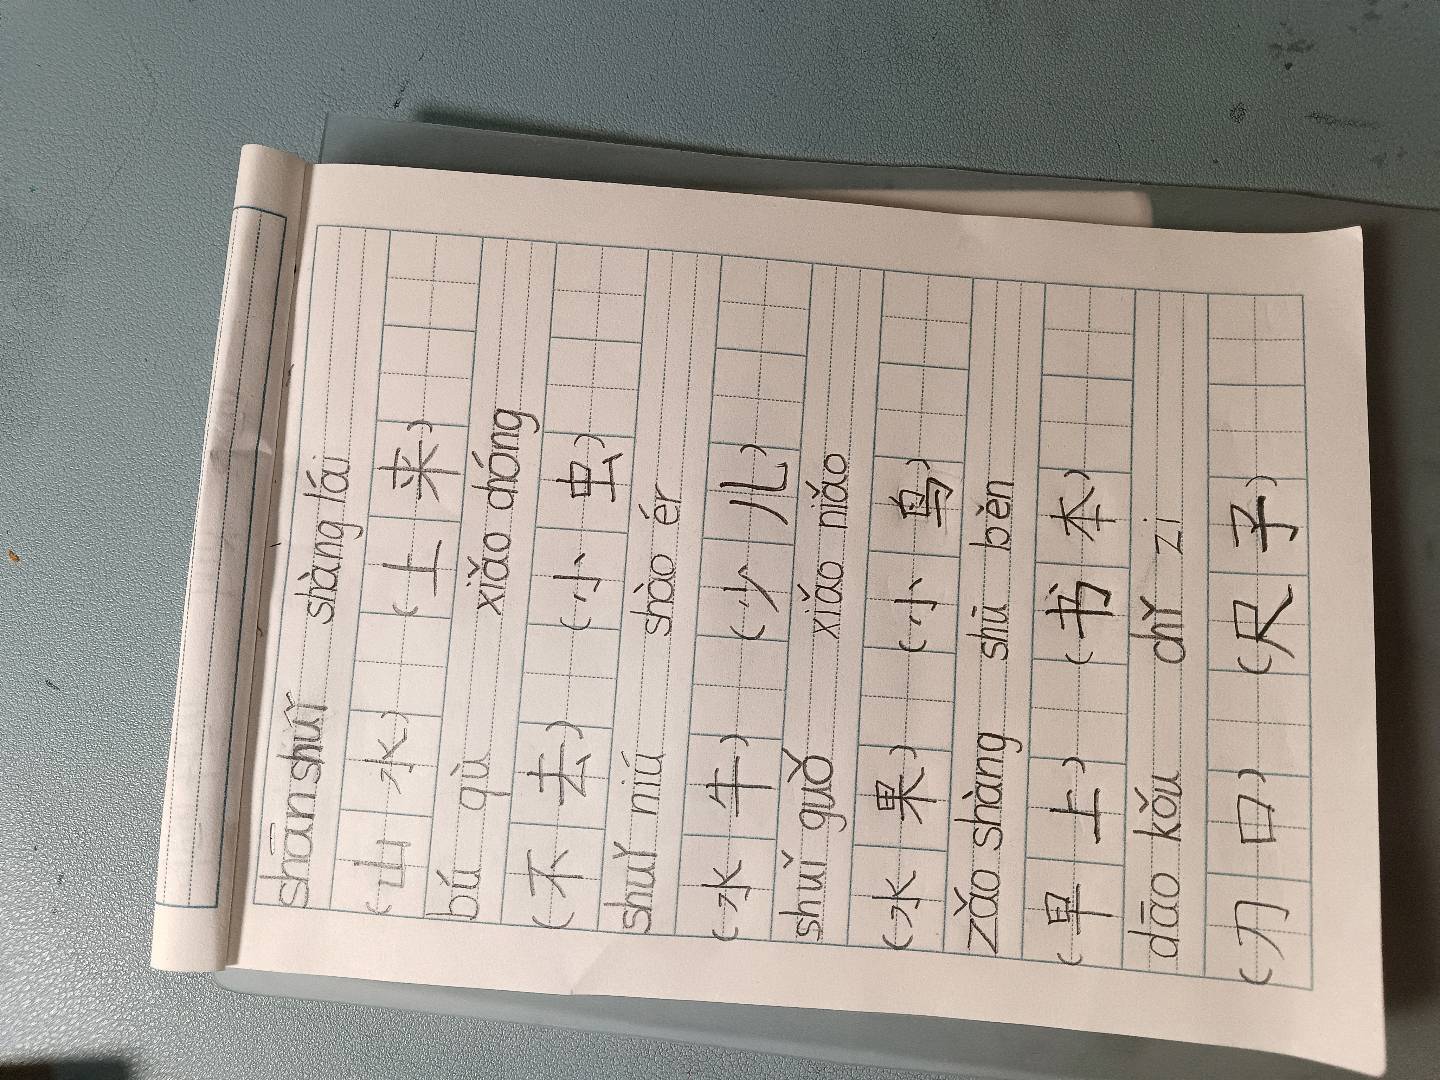 shān shuǐ shàng lái
(山水) (上来)
bú qù xiǎo chóng
(不去) (小虫)
shuǐ niú shào ér
(水牛) (少儿)
shuǐ guǒ xiǎo niǎo
(水果) (小鸟)
zǎo shàng shū běn
(早上) (书本)
dāo kǒu chǐ zi
(刀口) (尺子)